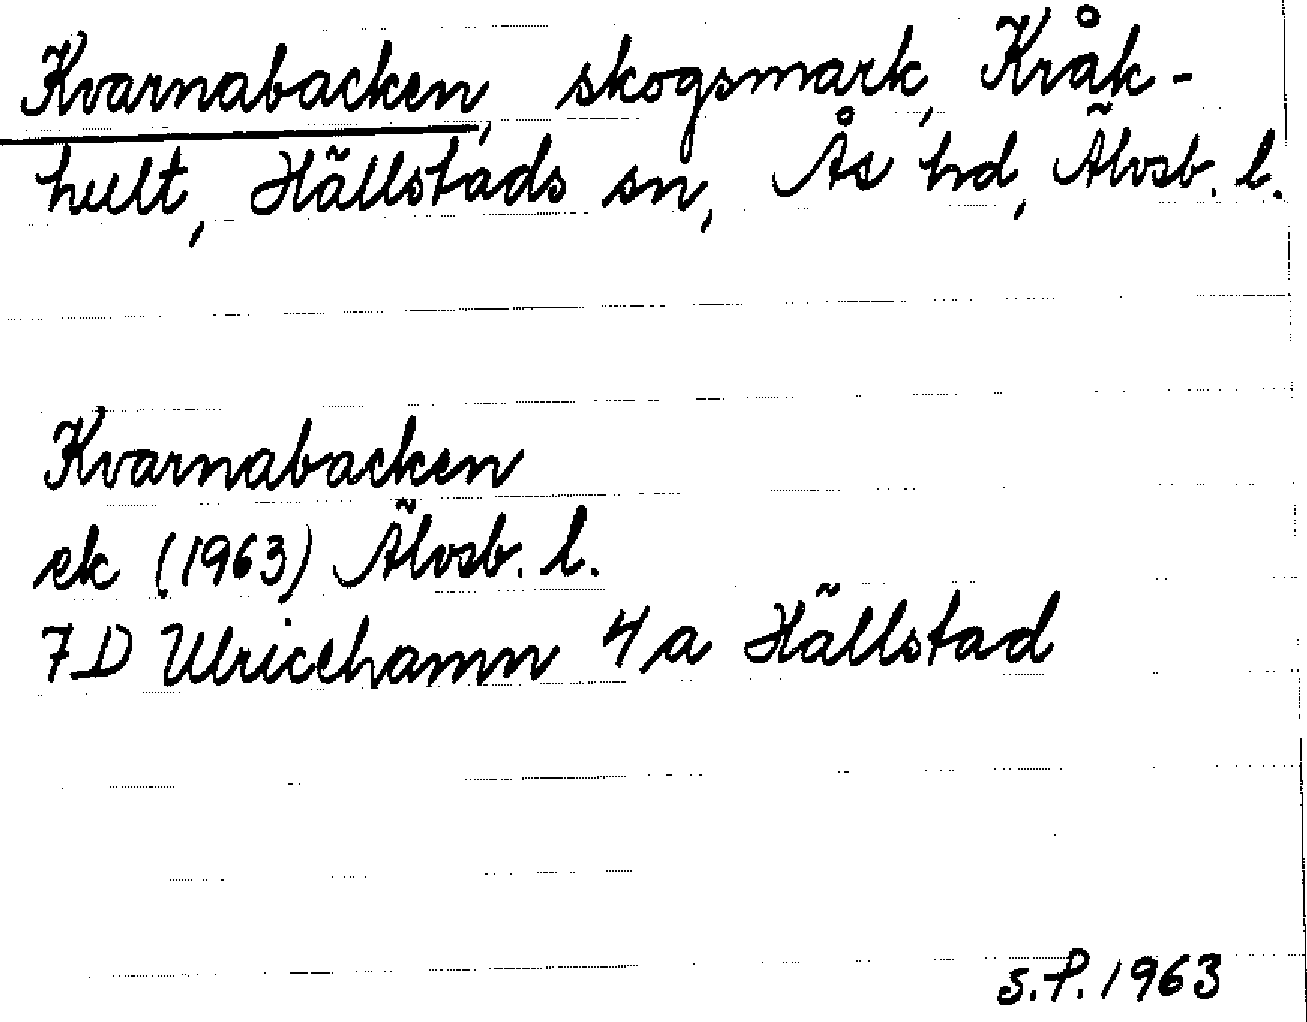 Kvarnabacken, skogsmark, Kråk-
hult, Hällstads sn, Ås hd, Älvsb. l.
Kvarnabacken
ek (1963) Älvsb. l.
7D Ulricehamn 4a Hällstad
S.P. 1963